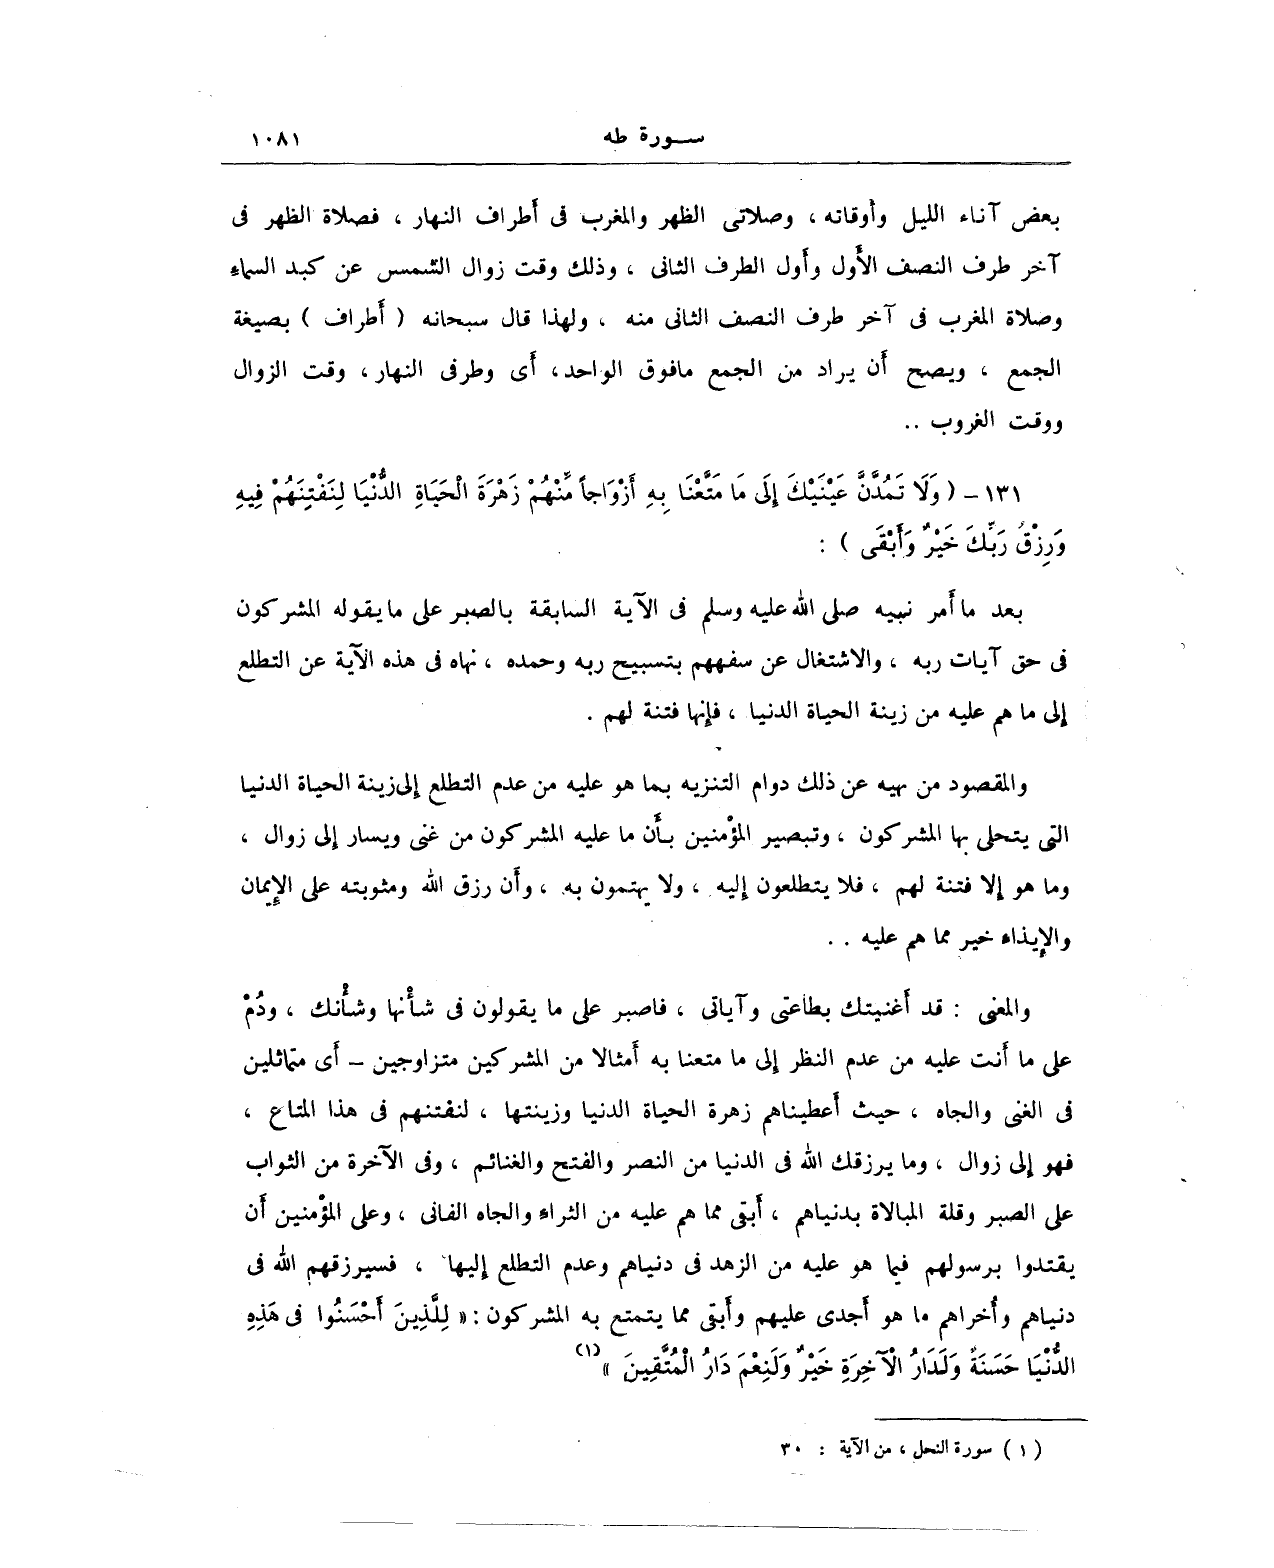 سورة طه ١٠٨١
بعض آناء الليل وأوقاته ، وصلاتى الظهر والمغرب فى أطراف النهار ، فصلاة الظهر فى
آخر طرف النصف الأول وأول الطرف الثانى ، وذلك وقت زوال الشمس عن كبد السماء
وصلاة المغرب فى آخر طرف النصف الثانى منه ، ولهذا قال سبحانه ( أطراف ) بصيغة
الجمع ، ويصح أن يراد من الجمع مافوق الواحد، أى وطرفى النهار ، وقت الزوال
ووقت الغروب ..
١٣١ – ( وَلَا تَمُدَّنَّ عَيْنَيْكَ إِلَى مَا مَتَّعْنَا بِهِ أَزْوَاجاً مِّنْهُمْ زَهْرَةَ الْحَيَاةِ الدُّنْيَا لِنَفْتِنَهُمْ فِيهِ
وَرِزْقُ رَبِّكَ خَيْرٌ وَأَبْقَى ) :
بعد ما أمر نبيه صلى الله عليه وسلم فى الآية السابقة بالصبر على مايقوله المشركون
فى حق آيات ربه ، والاشتغال عن سفههم بتسبيح ربه وحمده ، نهاه فى هذه الآية عن التطلع
إلى ما هم عليه من زينة الحياة الدنيا ، فإنها فتنة لهم .
والمقصود من نهيه عن ذلك دوام التنزيه بما هو عليه من عدم التطلع إلى زينة الحياة الدنيا
التى يتحلى بها المشركون ، وتبصير المؤمنين بأن ما عليه المشركون من غنى ويسار إلى زوال ،
وما هو إلا فتنة لهم ، فلا يتطلعون إليه ، ولا يهتمون به ، وأن رزق الله ومثوبته على الإيمان
والإيذاء خير مما هم عليه . .
والمعنى : قد أغنيتك بطاعتى وآياتى ، فاصبر على ما يقولون فى شأنها وشأنك ، ودُمْ
على ما أنت عليه من عدم النظر إلى ما متعنا به أمثالا من المشركين متزاوجين – أى متماثلين
فى الغنى والجاه ، حيث أعطيناهم زهرة الحياة الدنيا وزينتها ، لنفتنهم فى هذا المتاع ،
فهو إلى زوال ، وما يرزقك الله فى الدنيا من النصر والفتح والغنائم ، وفى الآخرة من الثواب
على الصبر وقلة المبالاة بدنياهم ، أبقى مما هم عليه من الثراء والجاه الفانى ، وعلى المؤمنين أن
يقتدوا برسولهم فيما هو عليه من الزهد فى دنياهم وعدم التطلع إليها ، فسيرزقهم الله فى
دنياهم وأخراهم ما هو أجدى عليهم وأبقى مما يتمتع به المشركون : « لِلَّذِينَ أَحْسَنُوا فى هَذِهِ
الدُّنْيَا حَسَنَةٌ وَلَدَارُ الْآخِرَةِ خَيْرٌ وَلَنِعْمَ دَارُ الْمُتَّقِينَ » (١)
( ١ ) سورة النحل ، من الآية : ٣٠